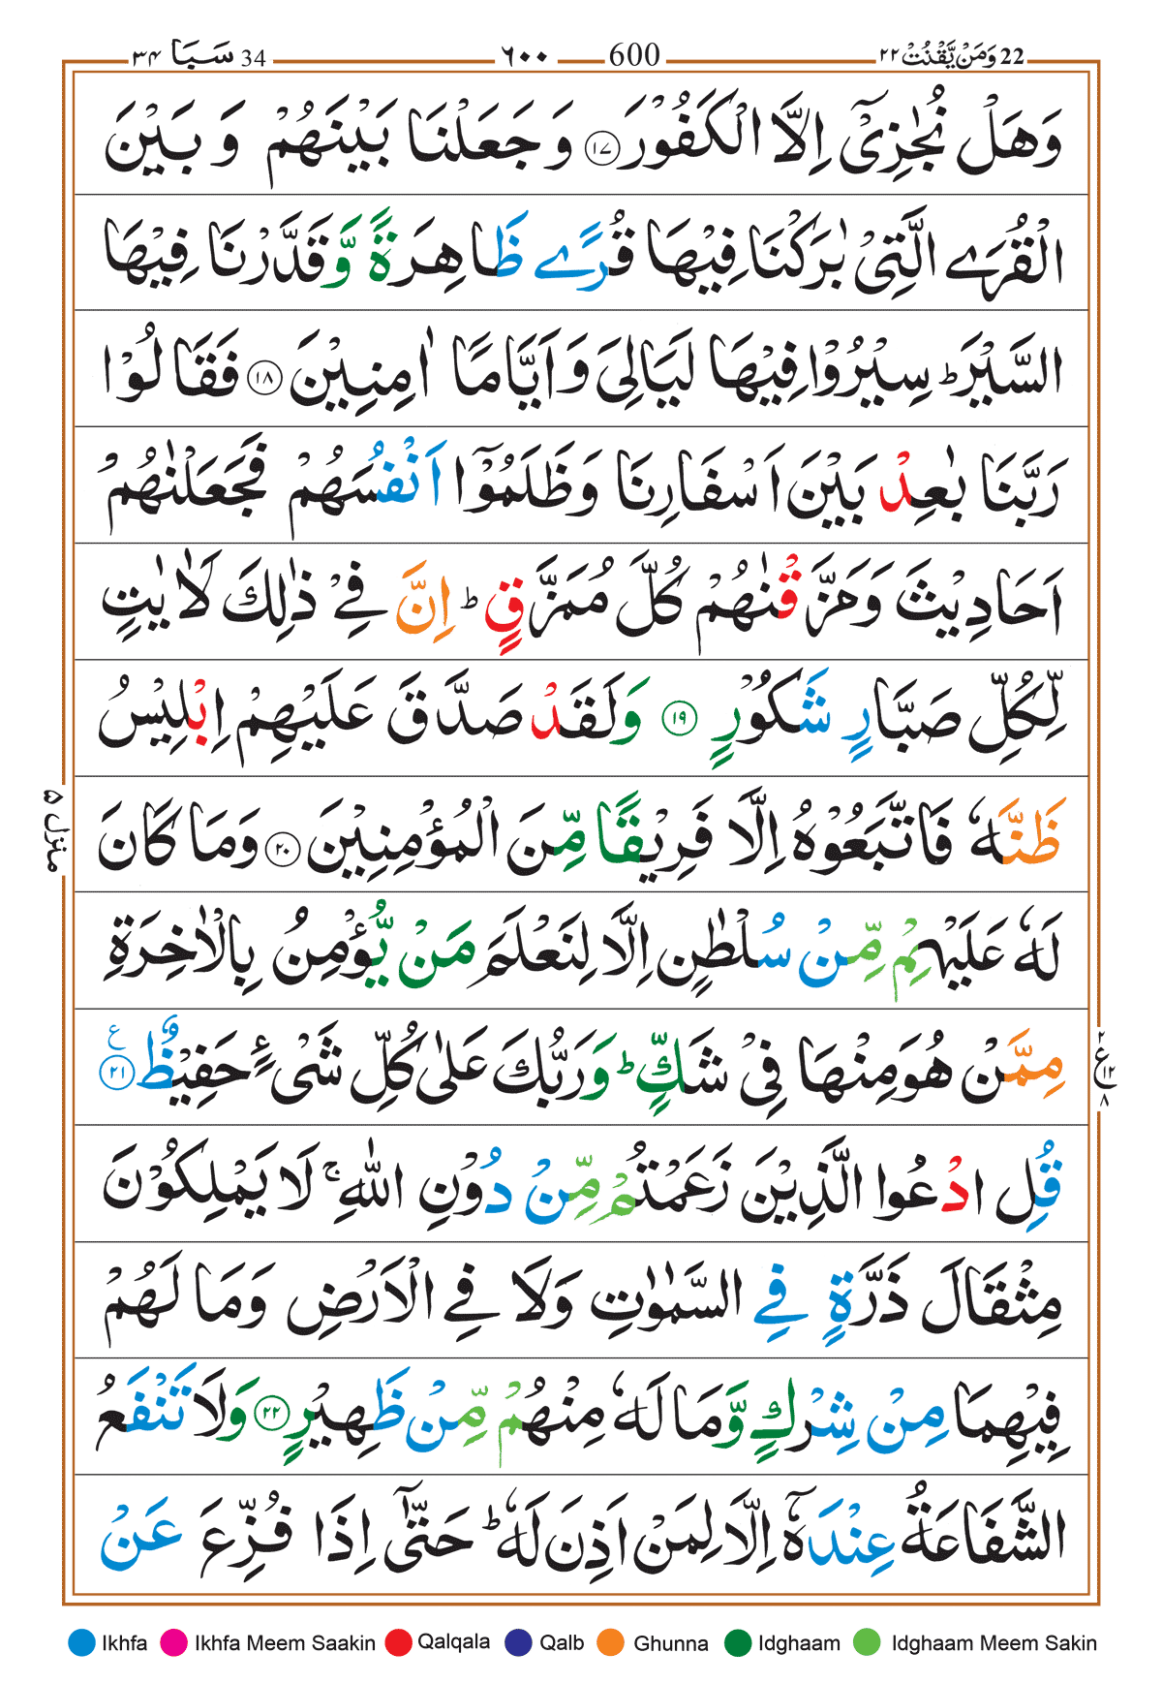 22 وَمَنْ يَّقْنُتْ ٢٢ 600 ٦٠٠ 34 سَبَا ٣٤
وَهَلْ نُجٰزِيْۤ اِلَّا الْكَفُوْرَ ١٧ وَجَعَلْنَا بَيْنَهُمْ وَبَيْنَ
الْقُرَى الَّتِيْ بٰرَكْنَا فِيْهَا قُرًى ظَاهِرَةً وَّقَدَّرْنَا فِيْهَا
السَّيْرَ ؕ سِيْرُوْا فِيْهَا لَيَالِيَ وَاَيَّامًا اٰمِنِيْنَ ١٨ فَقَالُوْا
رَبَّنَا بٰعِدْ بَيْنَ اَسْفَارِنَا وَظَلَمُوْۤا اَنْفُسَهُمْ فَجَعَلْنٰهُمْ
اَحَادِيْثَ وَمَزَّقْنٰهُمْ كُلَّ مُمَزَّقٍ ؕ اِنَّ فِيْ ذٰلِكَ لَاٰيٰتٍ
لِّكُلِّ صَبَّارٍ شَكُوْرٍ ١٩ وَلَقَدْ صَدَّقَ عَلَيْهِمْ اِبْلِيْسُ
ظَنَّهٗ فَاتَّبَعُوْهُ اِلَّا فَرِيْقًا مِّنَ الْمُؤْمِنِيْنَ ٢٠ وَمَا كَانَ
لَهٗ عَلَيْهِمْ مِّنْ سُلْطٰنٍ اِلَّا لِنَعْلَمَ مَنْ يُّؤْمِنُ بِالْاٰخِرَةِ
مِمَّنْ هُوَ مِنْهَا فِيْ شَكٍّ ؕ وَرَبُّكَ عَلٰى كُلِّ شَيْءٍ حَفِيْظٌ ٢١ ع
قُلِ ادْعُوا الَّذِيْنَ زَعَمْتُمْ مِّنْ دُوْنِ اللّٰهِ ۚ لَا يَمْلِكُوْنَ
مِثْقَالَ ذَرَّةٍ فِي السَّمٰوٰتِ وَلَا فِي الْاَرْضِ وَمَا لَهُمْ
فِيْهِمَا مِنْ شِرْكٍ وَّمَا لَهٗ مِنْهُمْ مِّنْ ظَهِيْرٍ ٢٢ وَلَا تَنْفَعُ
الشَّفَاعَةُ عِنْدَهٗۤ اِلَّا لِمَنْ اَذِنَ لَهٗ ؕ حَتّٰۤى اِذَا فُزِّعَ عَنْ
منزل ٥
٢ ع ١٢ ٨
Ikhfa Ikhfa Meem Saakin Qalqala Qalb Ghunna Idghaam Idghaam Meem Sakin